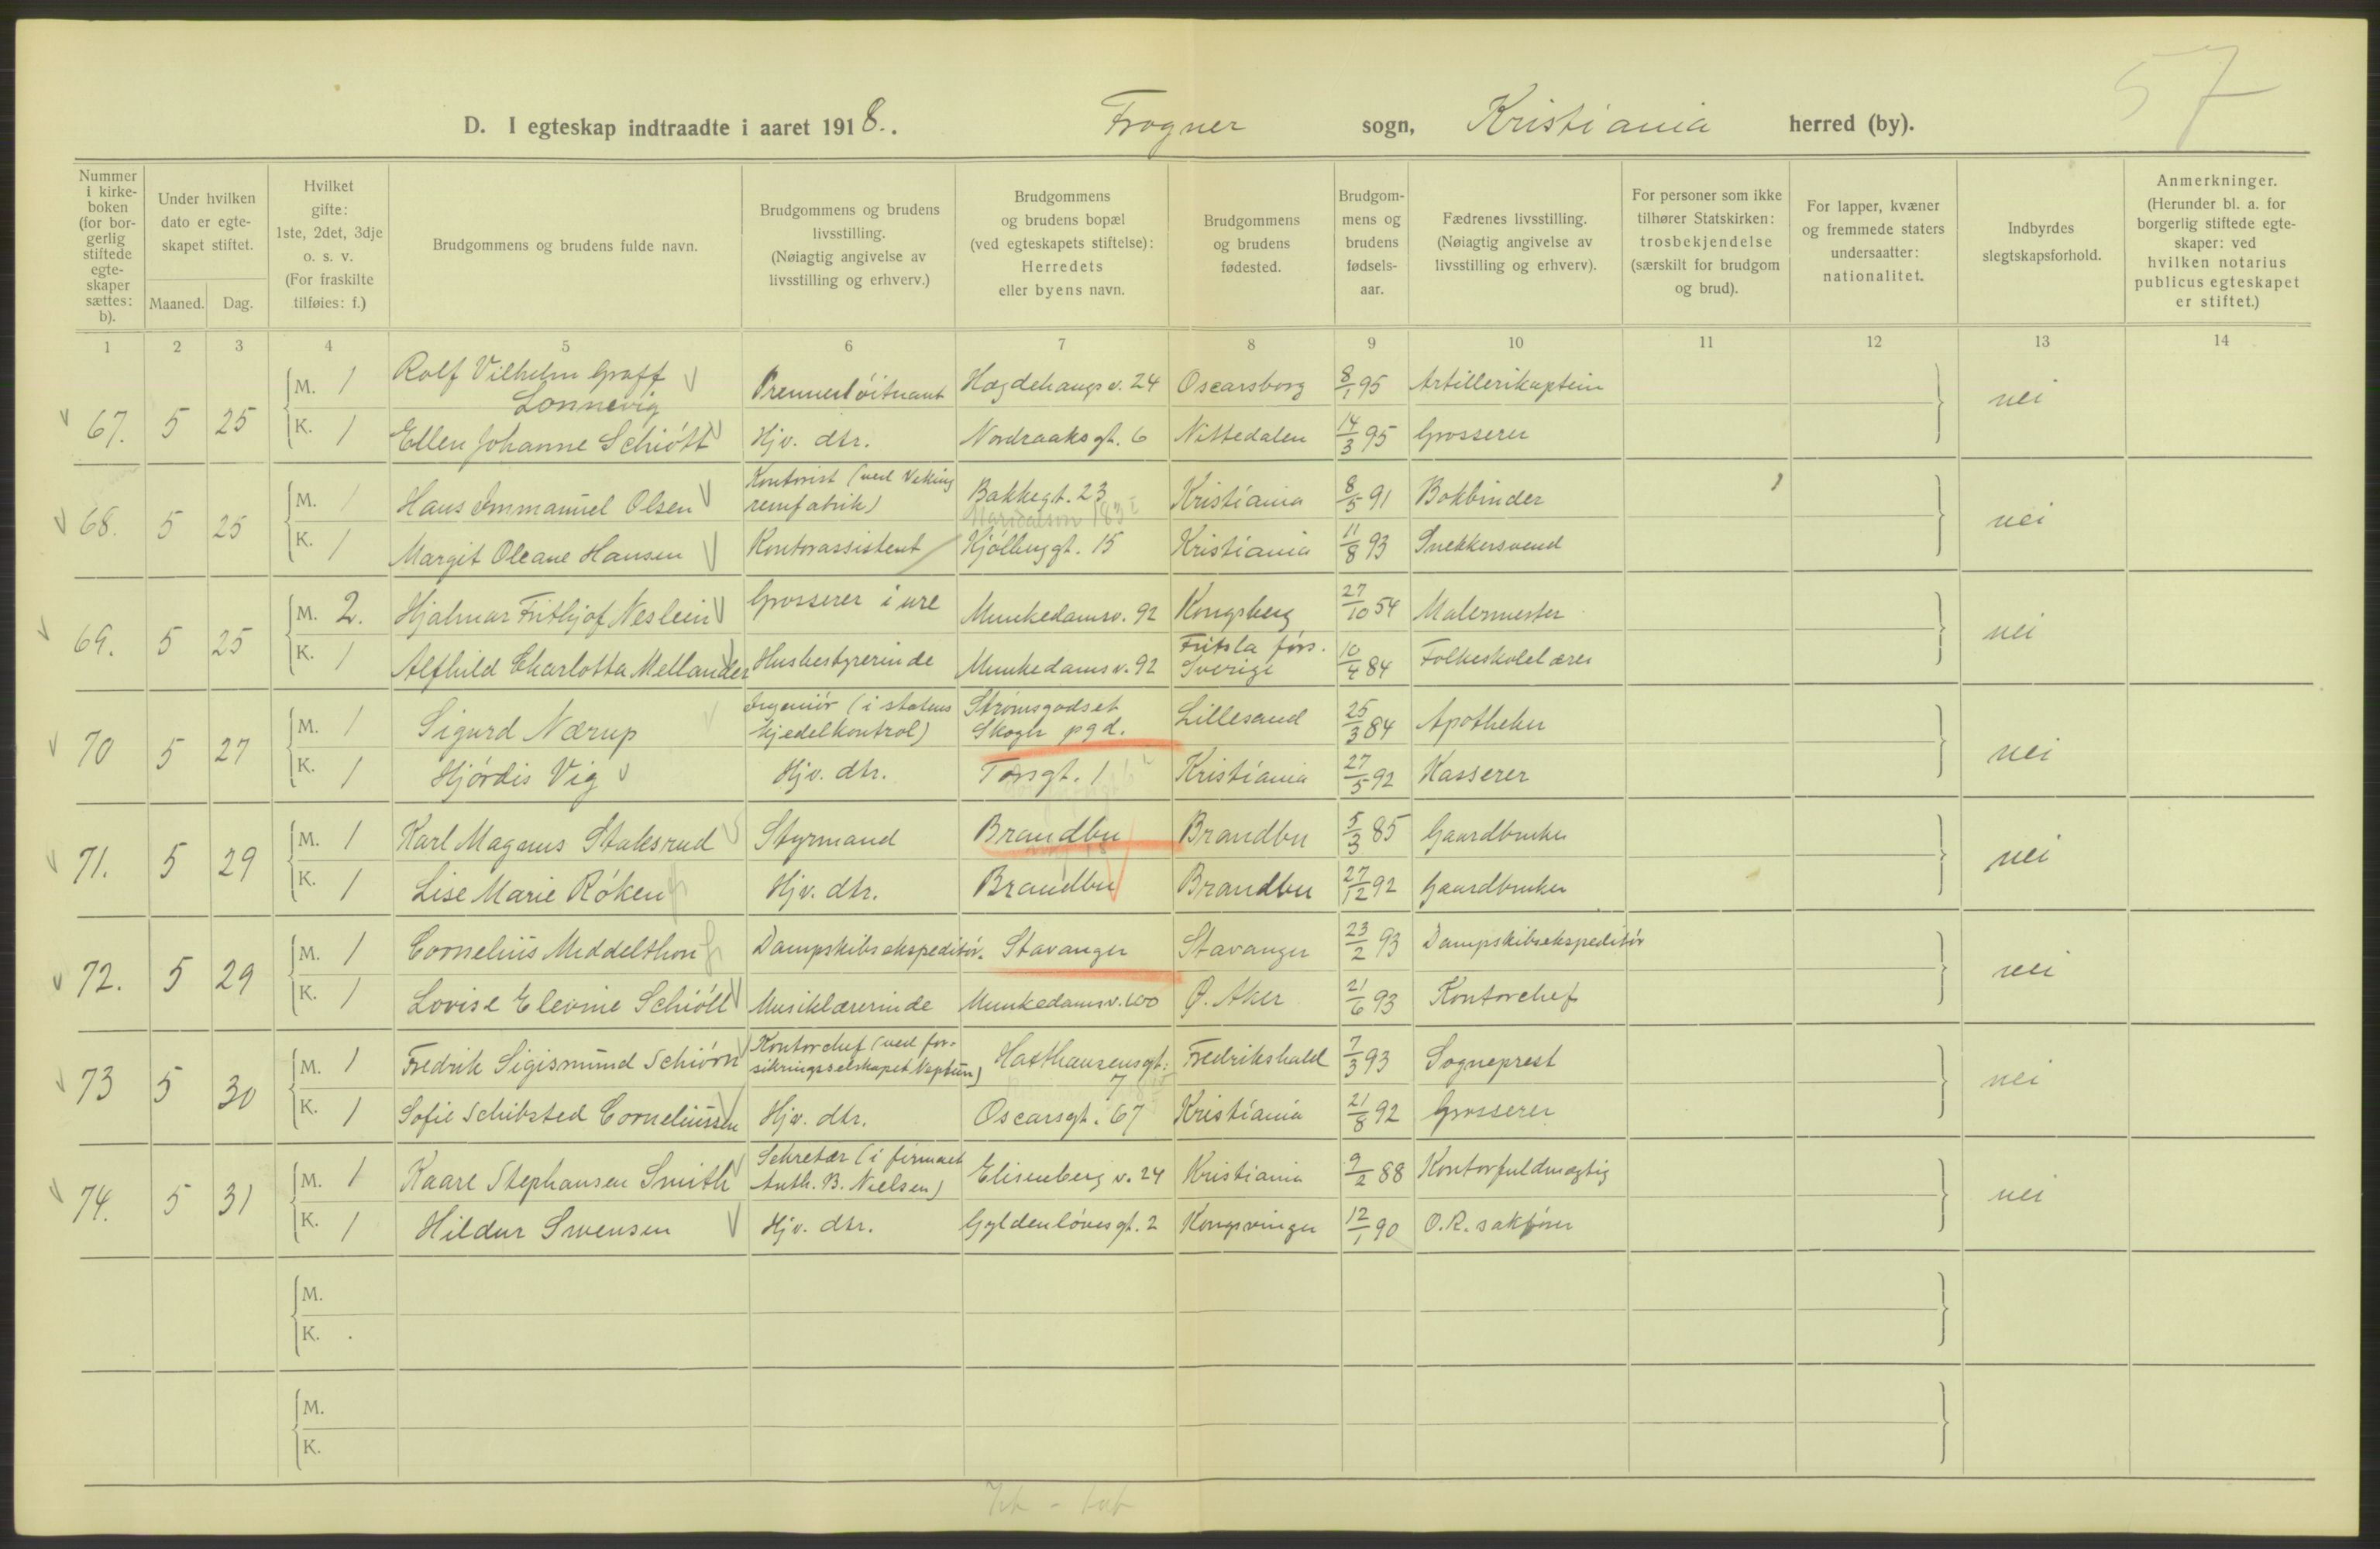 57
D. I egteskap indtraadte i aaret 1918. Frogner sogn, Kristiania herred (by).
Nummer i kirke-boken (for bor-gerlig stiftede egte-skaper sættes: b).
Under hvilken dato er egte-skapet stiftet.
Maaned. Dag.
Hvilket gifte: 1ste, 2det, 3dje o. s. v. (For fraskilte tilføies: f.)
Brudgommens og brudens fulde navn.
Brudgommens og brudens livsstilling. (Nøiagtig angivelse av livsstilling og erhverv.)
Brudgommens og brudens bopæl (ved egteskapets stiftelse): Herredets eller byens navn.
Brudgommens og brudens fødested.
Brudgom-mens og brudens fødsels-aar.
Fædrenes livsstilling. (Nøiagtig angivelse av livsstilling og erhverv).
For personer som ikke tilhører Statskirken: trosbekjendelse (særskilt for brudgom og brud).
For lapper, kvæner og fremmede staters undersaatter: nationalitet.
Indbyrdes slegtskapsforhold.
Anmerkninger. (Herunder bl. a. for borgerlig stiftede egte-skaper: ved hvilken notarius publicus egteskapet er stiftet.)
1 2 3 4 5 6 7 8 9 10 11 12 13 14
67. 5 25 M. 1 Rolf Vilhelm Graff Lonnevig Premierløitnant Hægdehaugsv. 24 Oscarsborg 8/1 95 Artillerikaptein nei
K. 1 Ellen Johanne Schiøtt Hjv. dtr. Nordraaksgt. 6 Nittedalen 14/3 95 Grosserer
68. 5 25 M. 1 Hans Immanuel Olsen Kontorist (ved Viking remfabrik) Bakkegt. 23 Kristiania 8/5 91 Bokbinder nei
K. 1 Margit Oleane Hansen Kontorassistent Kjølberggt. 15 Kristiania 11/8 93 Snekkersvend
69. 5 25 M. 2. Hjalmar Frithjof Neslein Grosserer i ure Munkedamsv. 92 Kongsberg 27/10 54 Malermester nei
K. 1 Alfhild Charlotta Mellander Husbestyrerinde Munkedamsv. 92 Fritsla førs. Sverige 10/4 84 Folkeskolelærer
70 5 27 M. 1 Sigurd Nærup Ingeniør (i statens kjedelkontrol) Strømsgodset Skoger pgd. Lillesand 25/3 84 Apotheker nei
K. 1 Hjørdis Vig Hjv. dtr. Torsgt. 1 Kristiania 27/5 92 Kasserer
71. 5 29 M. 1 Karl Magnus Staksrud Styrmand Brandbu Brandbu 5/3 85 Gaardbruker nei
K. 1 Lise Marie Røken Hjv. dtr. Brandbu Brandbu 27/12 92 Gaardbruker
72. 5 29 M. 1 Cornelius Middelthon Dampskibsekspeditør. Stavanger Stavanger 23/2 93 Dampskibsekspeditør nei
K. 1 Lovise Elevine Schiøll Musiklærerinde Munkedamsv. 100 Ø. Aker 21/6 93 Kontorchef
73 5 30 M. 1 Fredrik Sigismund Schiørn Kontorchef (ved for-sikringsselskapet Neptun) Haxthausensgt: 7 Fredrikshald 7/3 93 Sogneprest nei
K. 1 Sofie Schibsted Corneliussen Hjv. dtr. Oscarsgt. 67 Kristiania 21/8 92 Grosserer
74. 5 31 M. 1 Kaare Stephansen Smith Sekretær (i firmaet Anth. B. Nielsen) Elisenberg v. 24 Kristiania 9/2 88 Kontorfuldmægtig nei
K. 1 Hildur Swensen Hjv. dtr. Gyldenløvesgt. 2 Kongsvinger 12/1 90 O.R. sakfører
M.
K.
M.
K.